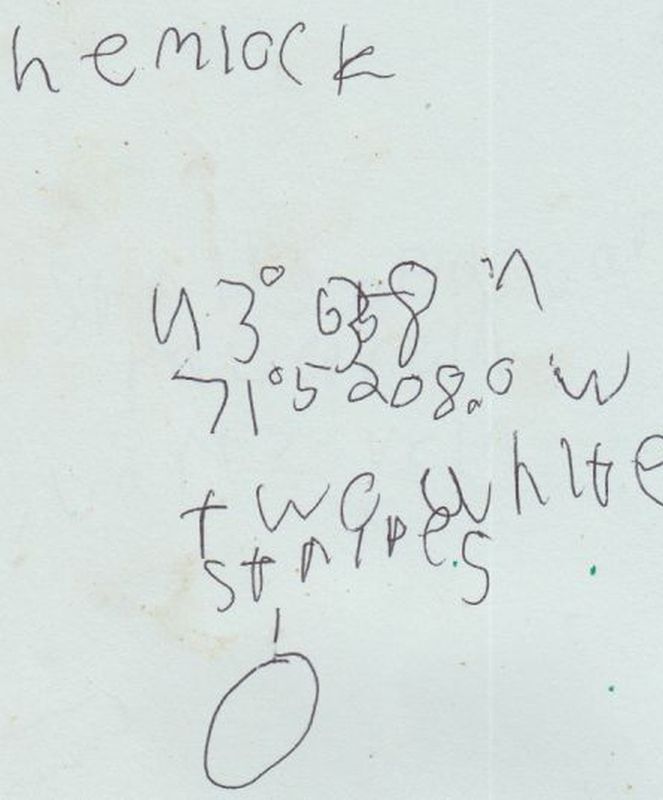 hemlock
43° n
71°5208.0 w
two white
stripes